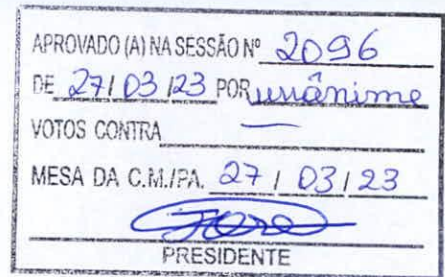 APROVADO (A) NA SESSÃO Nº 2096
DE 27/03/23 POR unânime
VOTOS CONTRA —
MESA DA C.M./PA. 27/03/23
PRESIDENTE